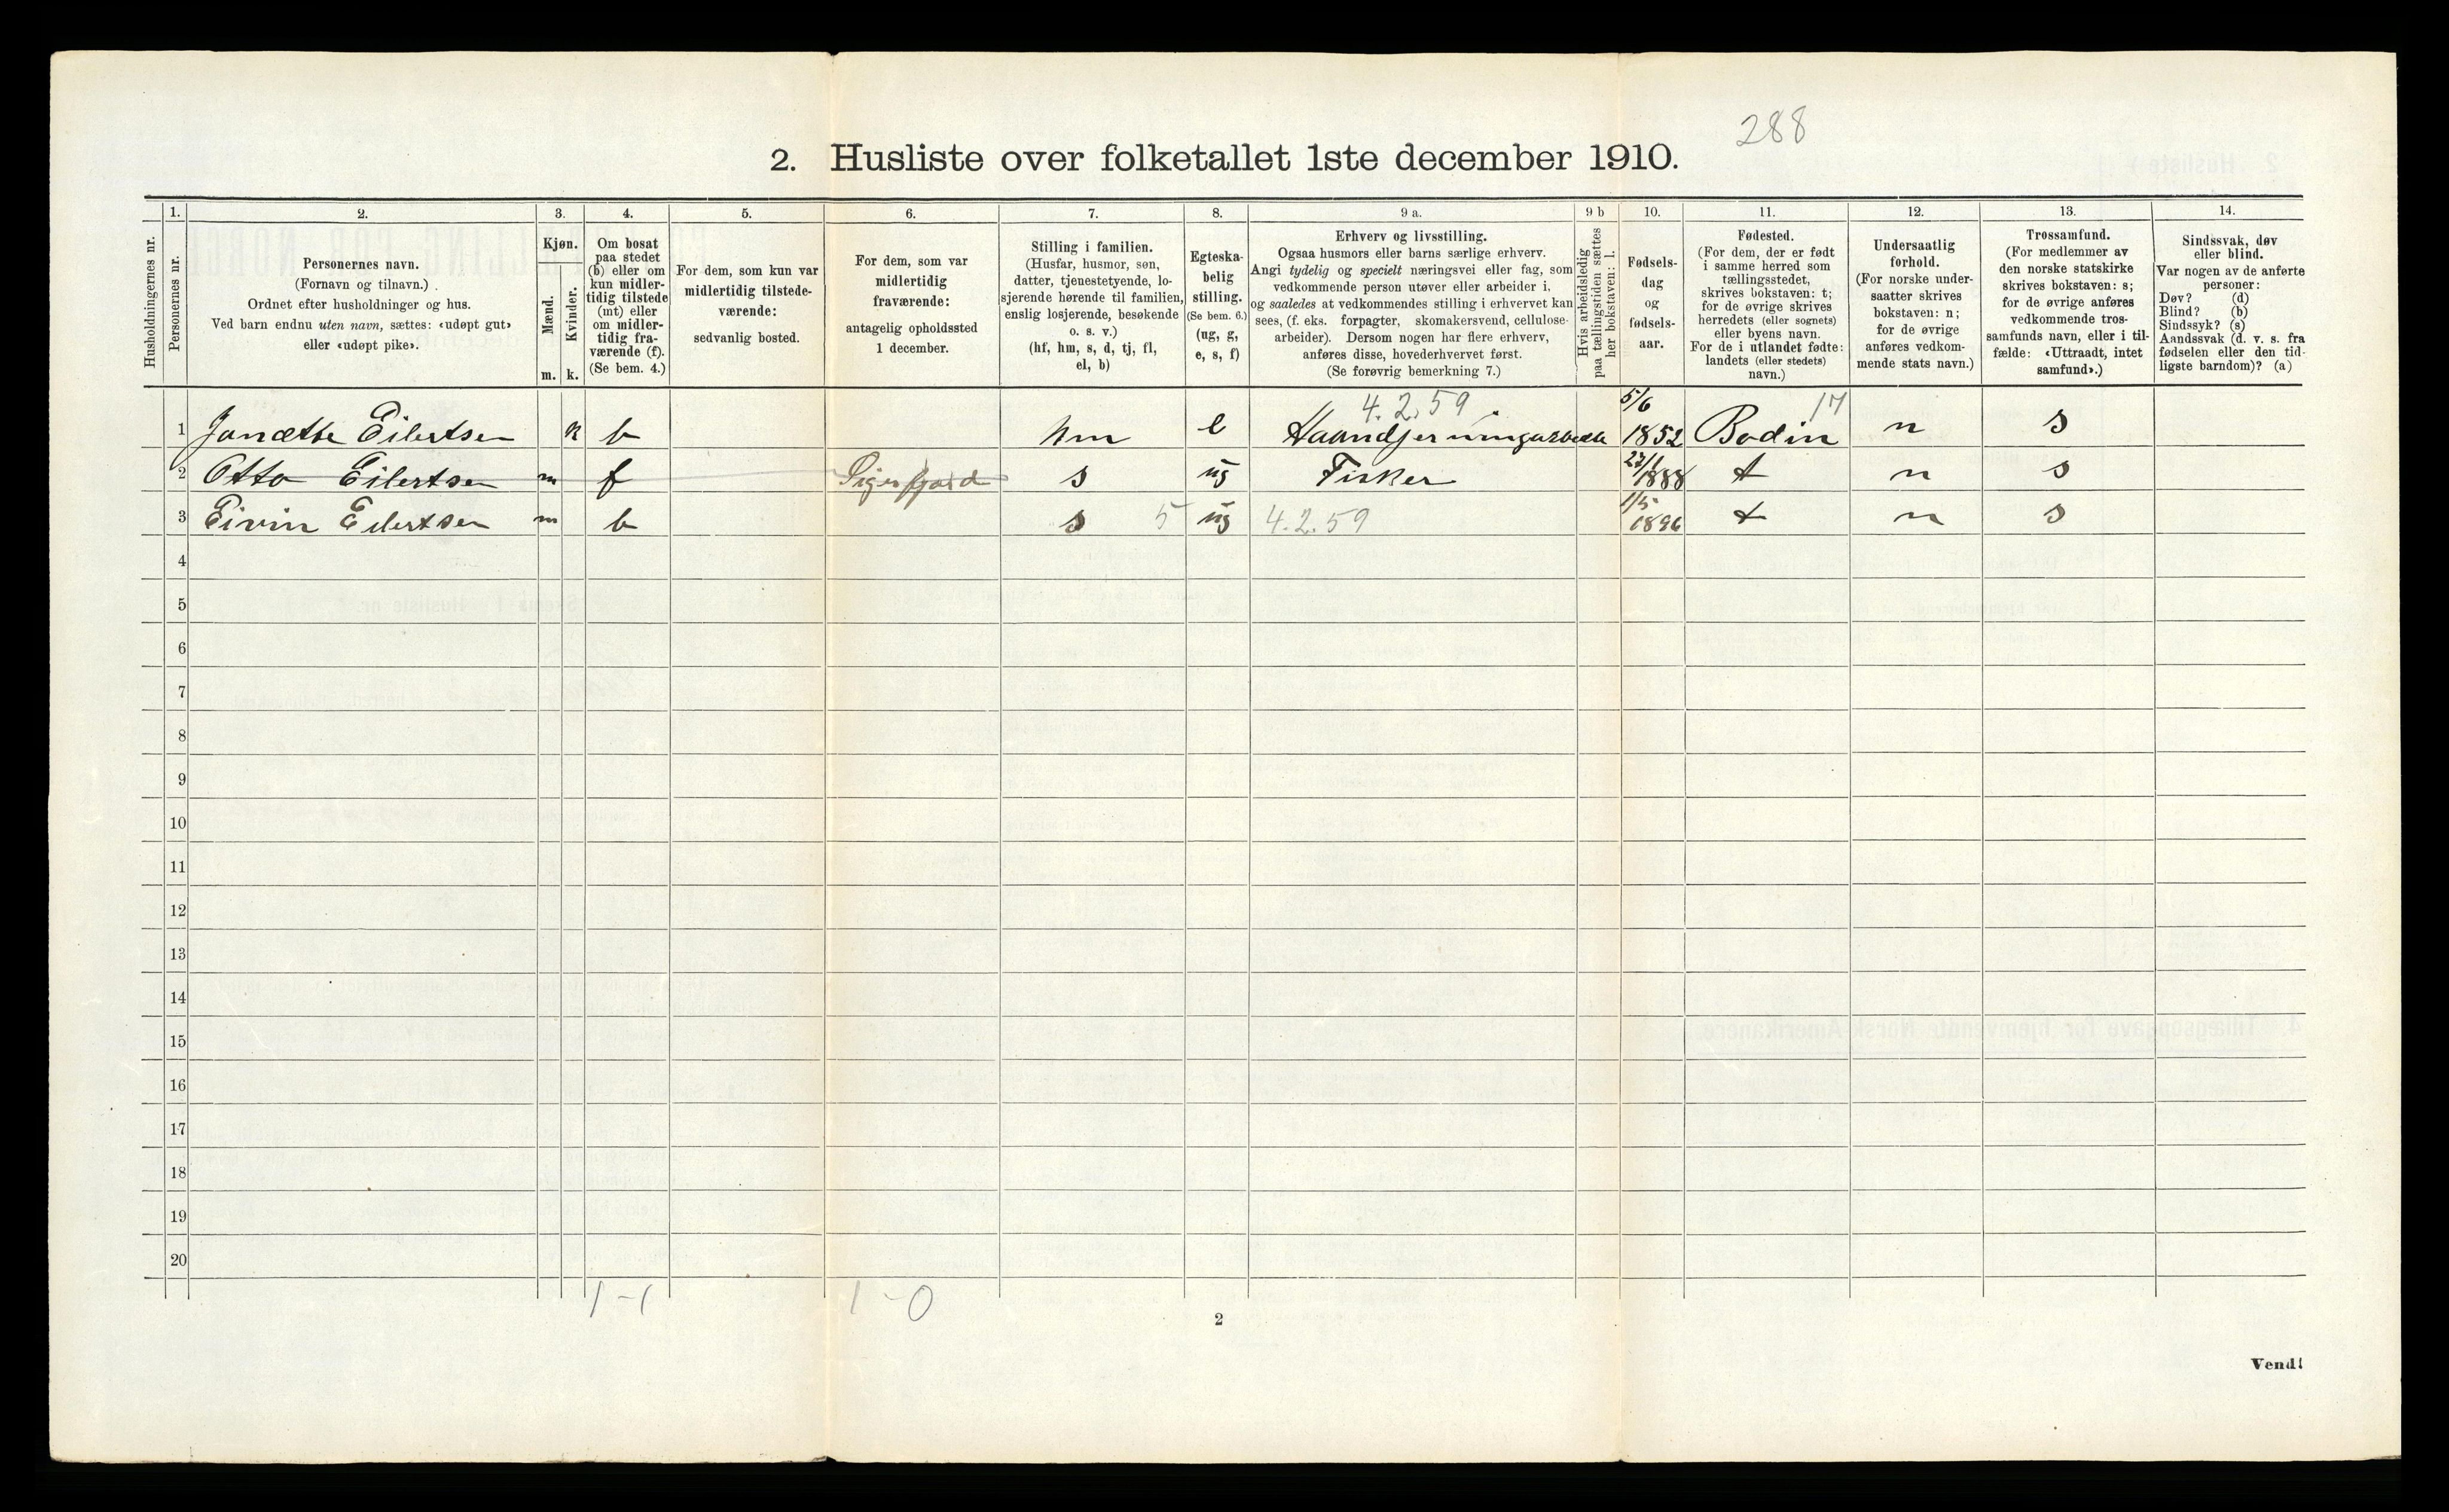 288
2. Husliste over folketallet 1ste december 1910.
Husholdningernes nr.
1.
Personernes nr.
2.
Personernes navn.
(Fornavn og tilnavn.)
Ordnet efter husholdninger og hus.
Ved barn endnu uten navn, sættes: «udøpt gut»
eller «udøpt pike».
3.
Kjøn.
Mænd.
m.
Kvinder.
k.
4.
Om bosat
paa stedet
(b) eller om
kun midler-
tidig tilstede
(mt) eller
om midler-
tidig fra-
værende (f).
(Se bem. 4.)
5.
For dem, som kun var
midlertidig tilstede-
værende:
sedvanlig bosted.
6.
For dem, som var
midlertidig
fraværende:
antagelig opholdssted
1 december.
7.
Stilling i familien.
(Husfar, husmor, søn,
datter, tjenestetyende, lo-
sjerende hørende til familien,
enslig losjerende, besøkende
o. s. v.)
(hf, hm, s, d, tj, fl,
el, b)
8.
Egteska-
belig
stilling.
(Se bem. 6.)
(ug, g,
e, s, f)
9 a.
Erhverv og livsstilling.
Ogsaa husmors eller barns særlige erhverv.
Angi tydelig og specielt næringsvei eller fag, som
vedkommende person utøver eller arbeider i,
og saaledes at vedkommendes stilling i erhvervet kan
sees, (f. eks. forpagter, skomakersvend, cellulose-
arbeider). Dersom nogen har flere erhverv,
anføres disse, hovederhvervet først.
(Se forøvrig bemerkning 7.)
9 b
Hvis arbeidsledig
paa tællingstiden sættes
her bokstaven: l.
10.
Fødsels-
dag
og
fødsels-
aar.
11.
Fødested.
(For dem, der er født
i samme herred som
tællingsstedet,
skrives bokstaven: t;
for de øvrige skrives
herredets (eller sognets)
eller byens navn.
For de i utlandet fødte:
landets (eller stedets)
navn.)
12.
Undersaatlig
forhold.
(For norske under-
saatter skrives
bokstaven: n;
for de øvrige
anføres vedkom-
mende stats navn.)
13.
Trossamfund.
(For medlemmer av
den norske statskirke
skrives bokstaven: s;
for de øvrige anføres
vedkommende tros-
samfunds navn, eller i til-
fælde: «Uttraadt, intet
samfund».)
14.
Sindssvak, døv
eller blind.
Var nogen av de anførte
personer:
Døv? (d)
Blind? (b)
Sindssyk? (s)
Aandssvak (d. v. s. fra
fødselen eller den tid-
ligste barndom)? (a)
4.2.59 5/6 17
1 Janætte Eilertsen k b hm e 1852 Bodin n s
2 Otto Eilertsen m f Sigerfjord s ug Fisker 27/1 1888 t n s
3 Eivin Eilertsen m b s 5 ug 4.2.59 1/5 1896 t n s
4
5
6
7
8
9
10
11
12
13
14
15
16
17
18
19
20
1-1 1-0
2
Vend!